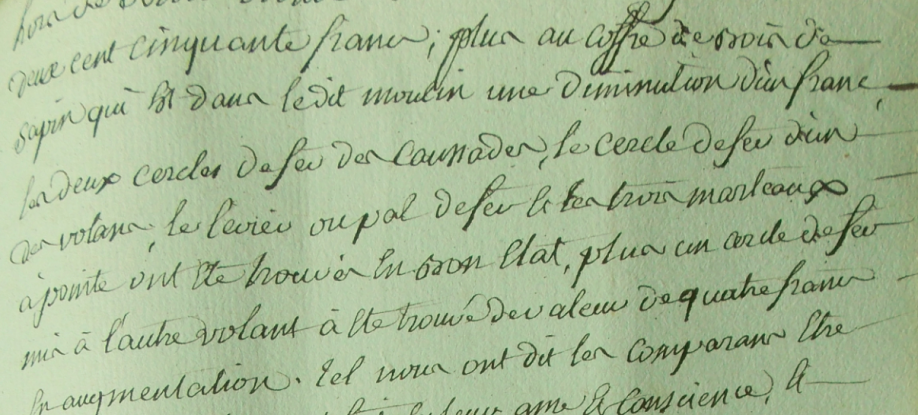 hors de
deux cent cinquante francs; plus au coffre de bois de
sapin qui est dans ledit moulin une diminution d'un franc,
les deux cercles de fer des caussades, le cercle de fer d'un
des volans, le levier ou pal de fer et les trois marteaux
à pointe ont été trouvés en bon etat, plus un cercle de fer
mis à l'autre volant à été trouvé de valeur de quatre francs
en augmentation. Tel nous ont dit les comparans etre
leur ame & conscience, et